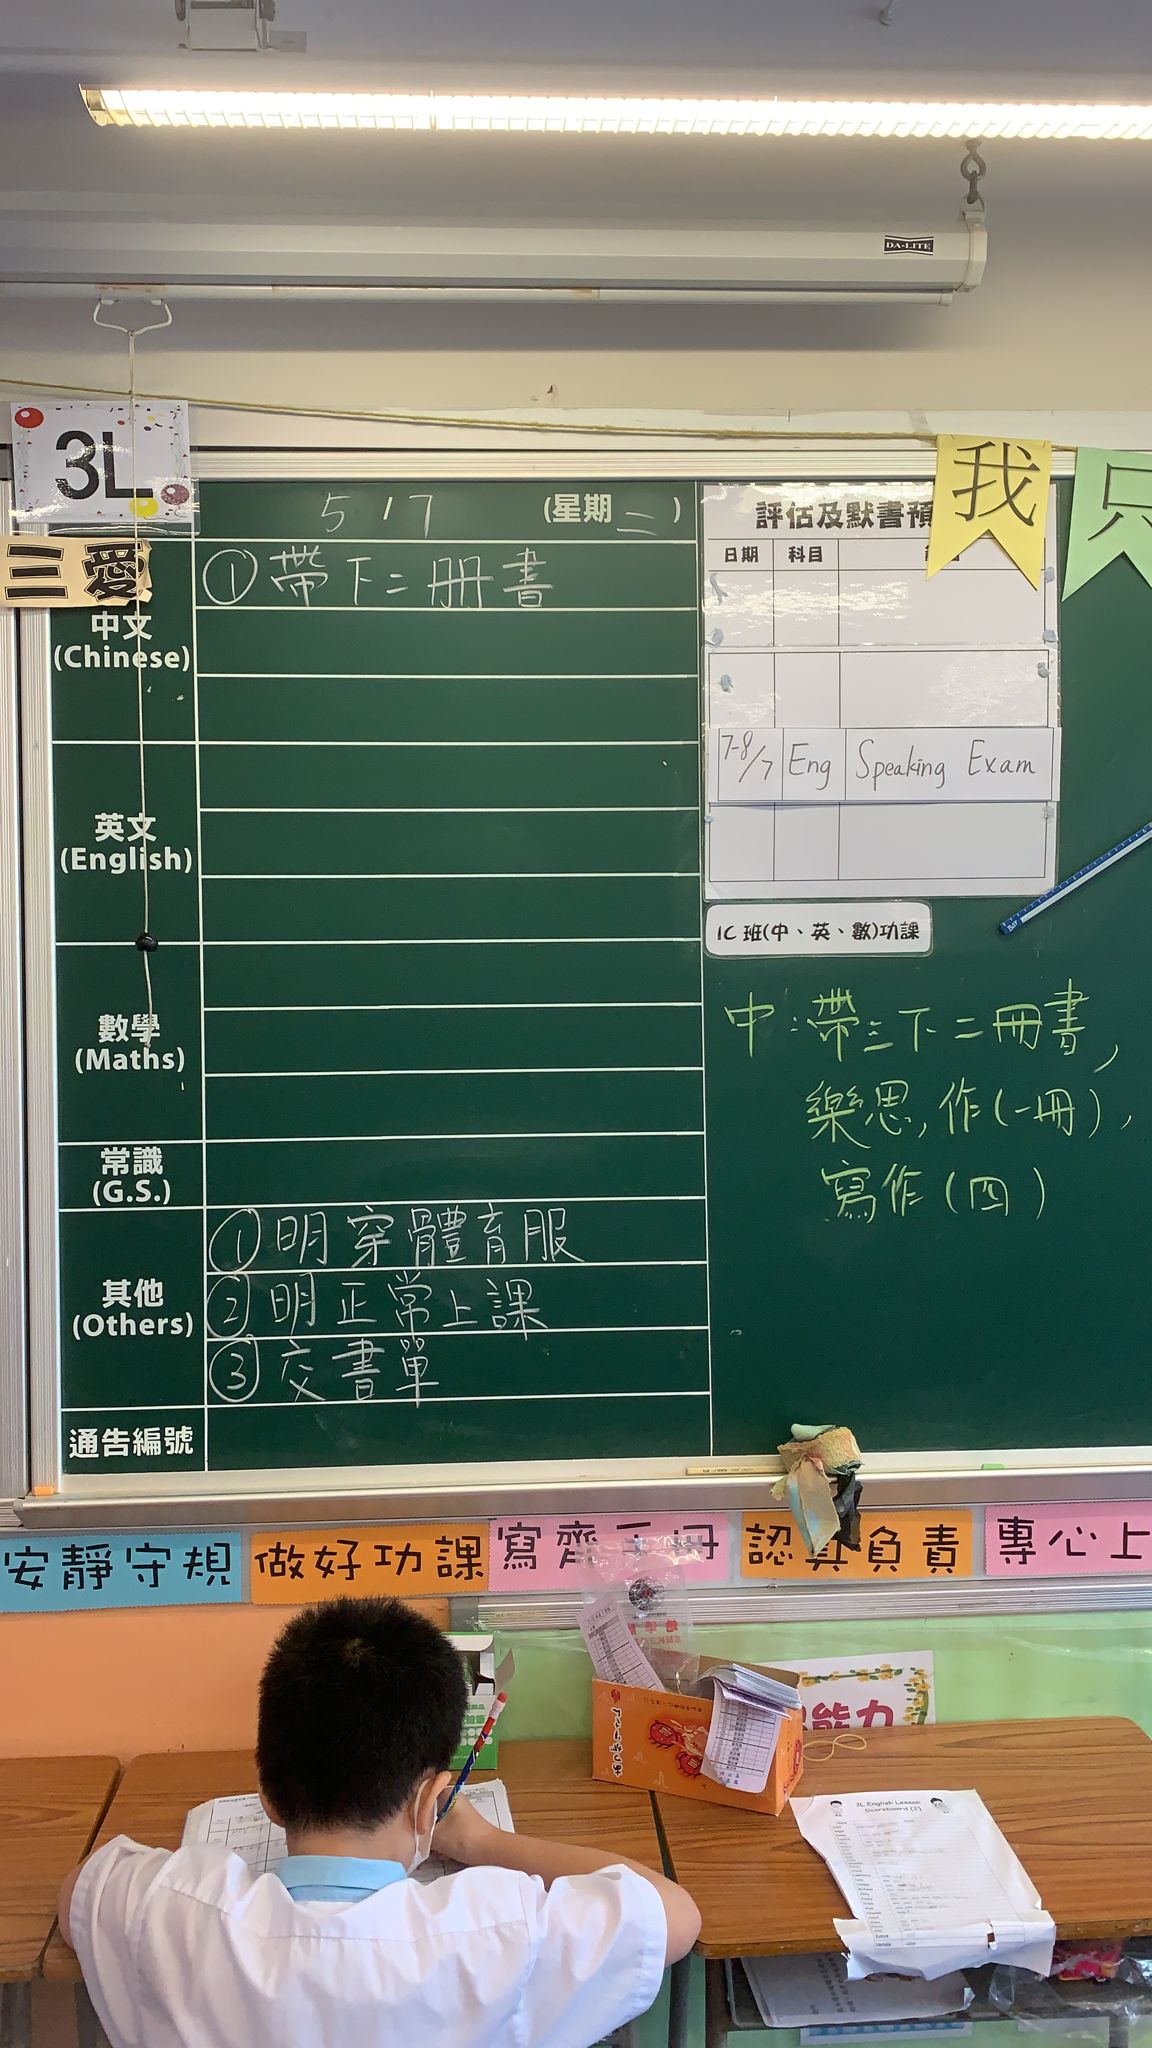 DA-LITE
3L
三愛
我
5/7 (星期二)
評估及默書預
日期 科目
7-8/7 Eng Speaking Exam
中文
(Chinese)
①帶下二冊書
英文
(English)
數學
(Maths)
常識
(G.S.)
其他
(Others)
①明穿體育服
②明正常上課
③交書單
通告編號
1C 班(中、英、數)功課
中：帶三下二冊書，
樂思，作(一冊)，
寫作(四)
安靜守規
做好功課
寫齊手冊
認真負責
專心上
能力
3L English Lesson
Scoreboard (2)